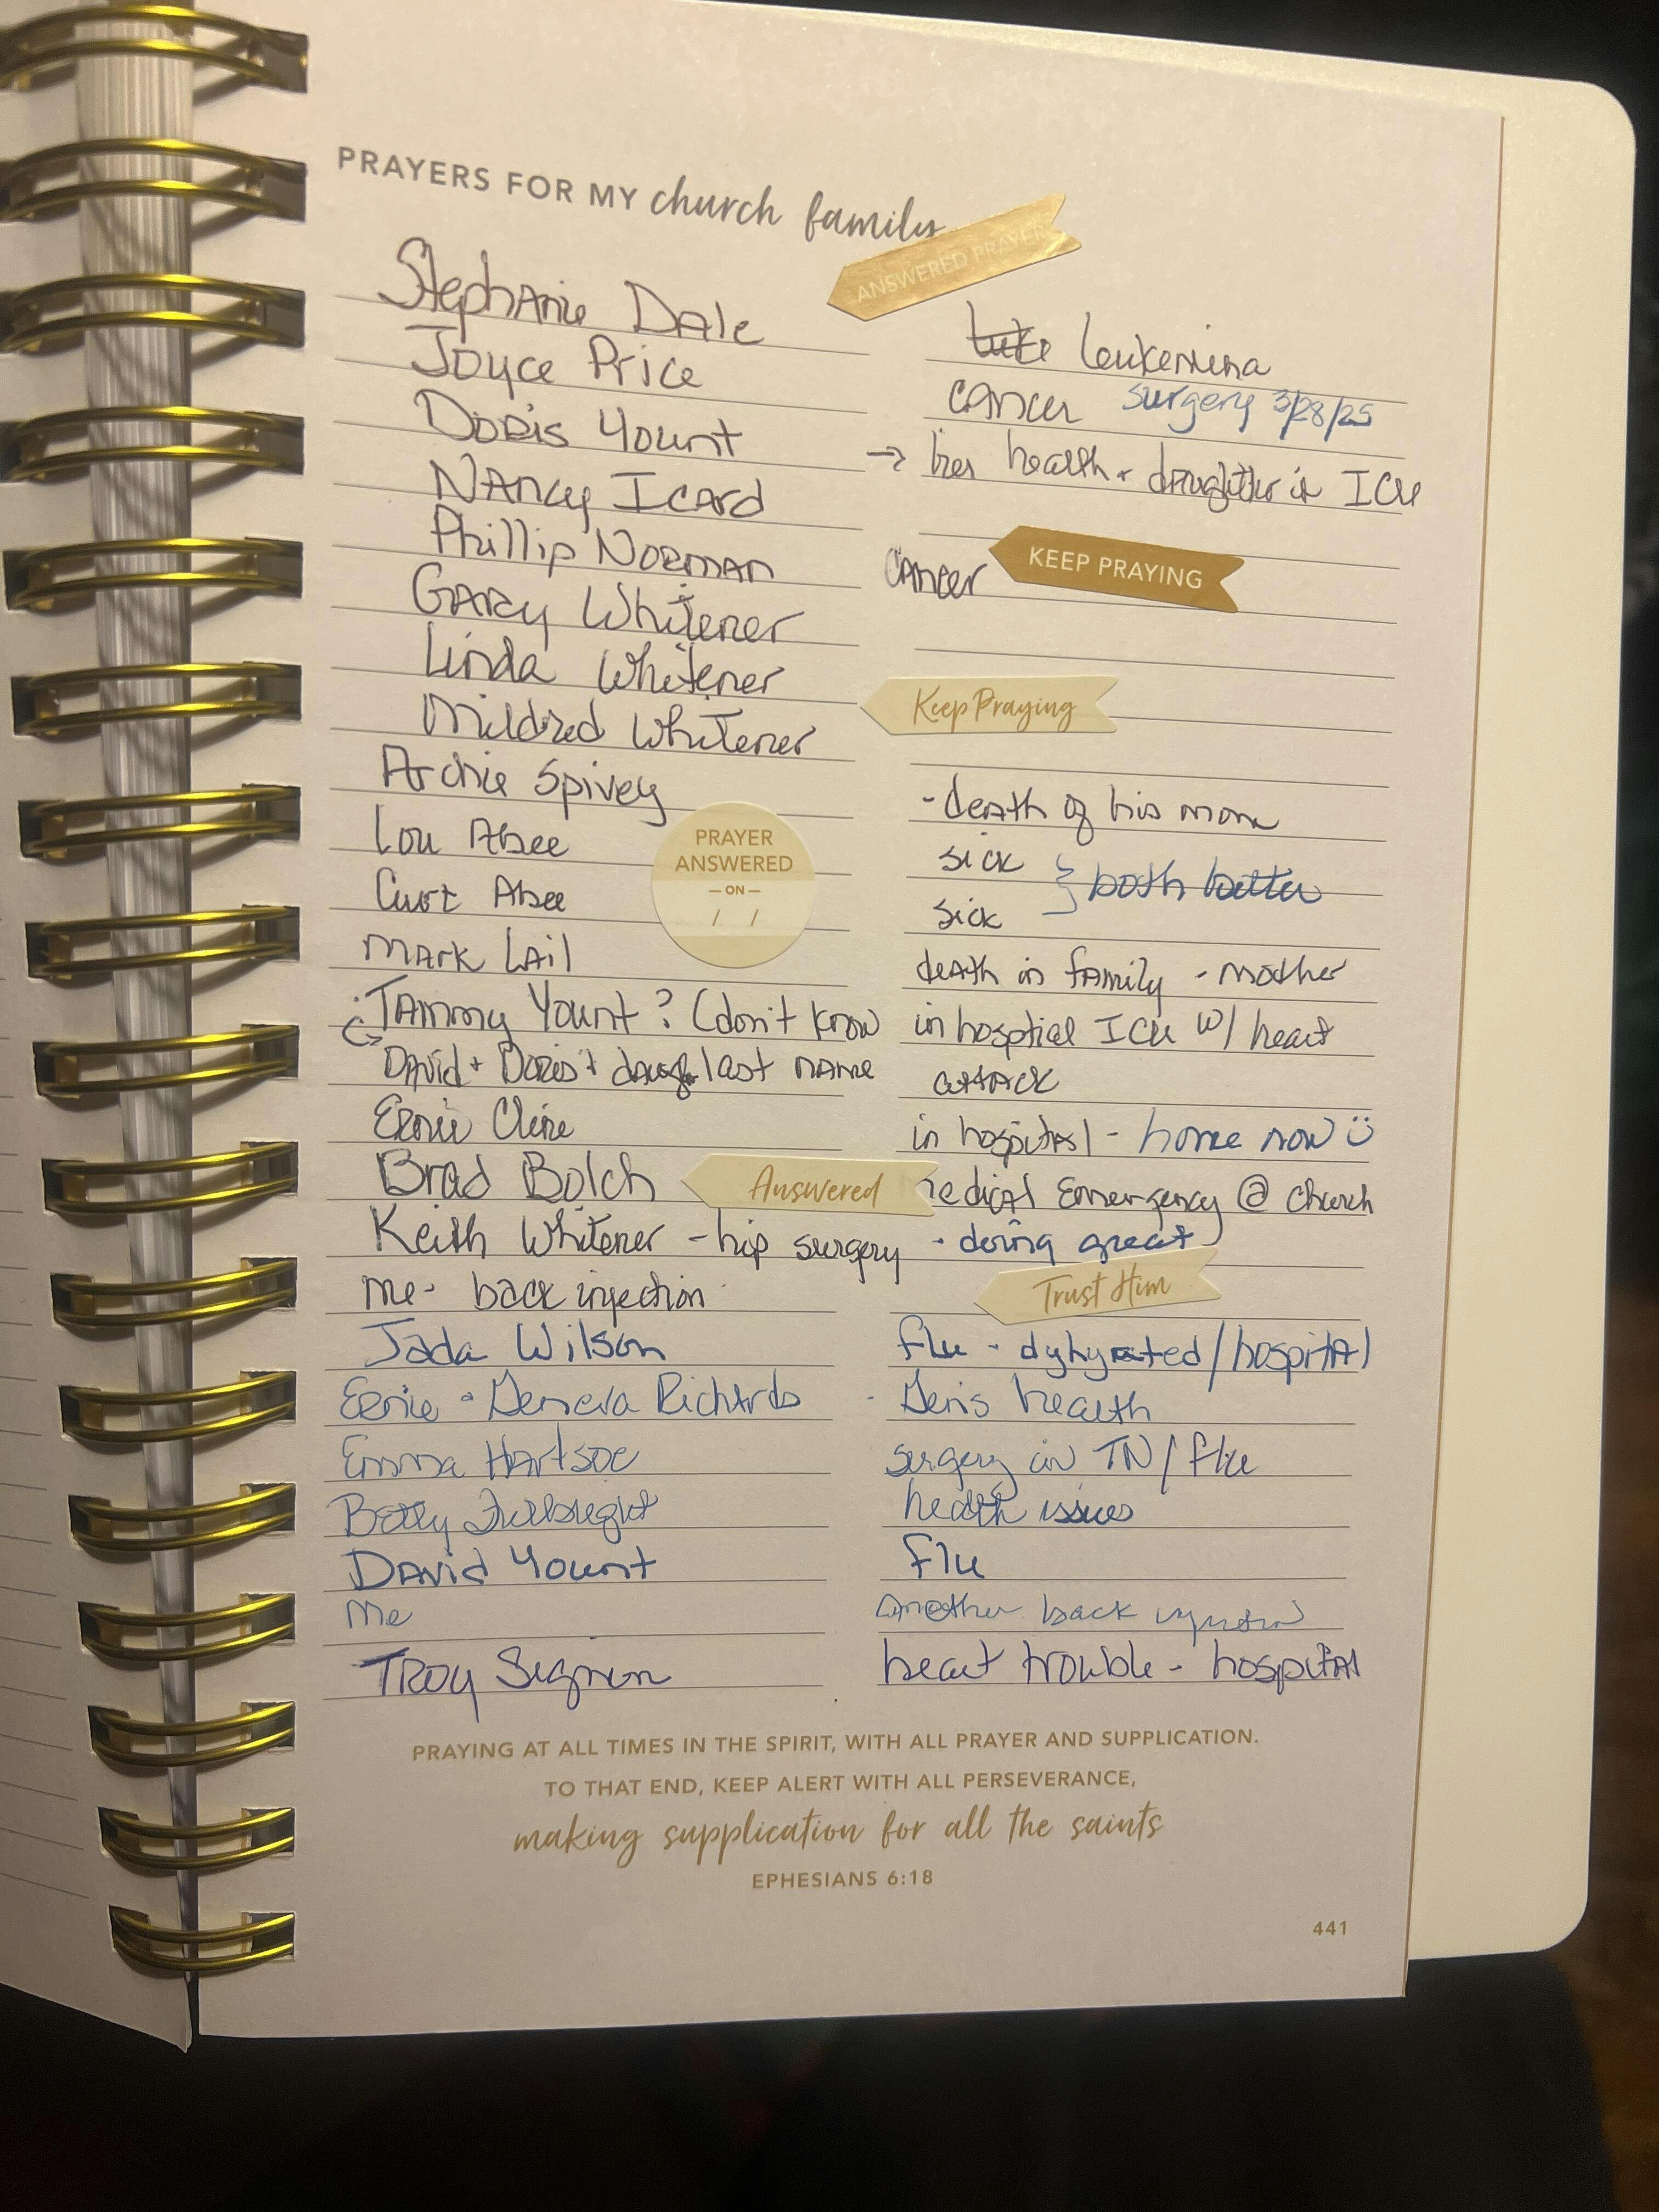 PRAYERS FOR MY church family
ANSWERED PRAYER
Stephanie Dale
Joyce Price Leukemina
Doris Yount cancer surgery 3/28/25
Nancy Icard → her health + daughter in ICU
Phillip Norman
Gary Whitener cancer KEEP PRAYING
Linda Whitener
Mildred Whitener Keep Praying
Archie Spivey - death of his mom
Lou Abee sick } both better
Curt Abee sick
PRAYER
ANSWERED
— ON —
/ /
Mark Lail death in family - mother
Tammy Yount? (don't know in hosptial ICU w/ heart
David + Doris's daugh. last name attack
Ernie Cline in hospital - home now
Brad Bolch Answered medical Emergency @ church
Keith Whitener - hip surgery - doing great
Me - back injection Trust Him
Jada Wilson flu - dyhyrated/hospital
Ernie + Geneva Richards - Gen's health
Emma Hartsoe surgery in TN/flu
Betty Fulbright health issues
David Yount flu
Me another back injection
Troy Sigmon heart trouble - hospital
PRAYING AT ALL TIMES IN THE SPIRIT, WITH ALL PRAYER AND SUPPLICATION.
TO THAT END, KEEP ALERT WITH ALL PERSEVERANCE,
making supplication for all the saints
EPHESIANS 6:18
441